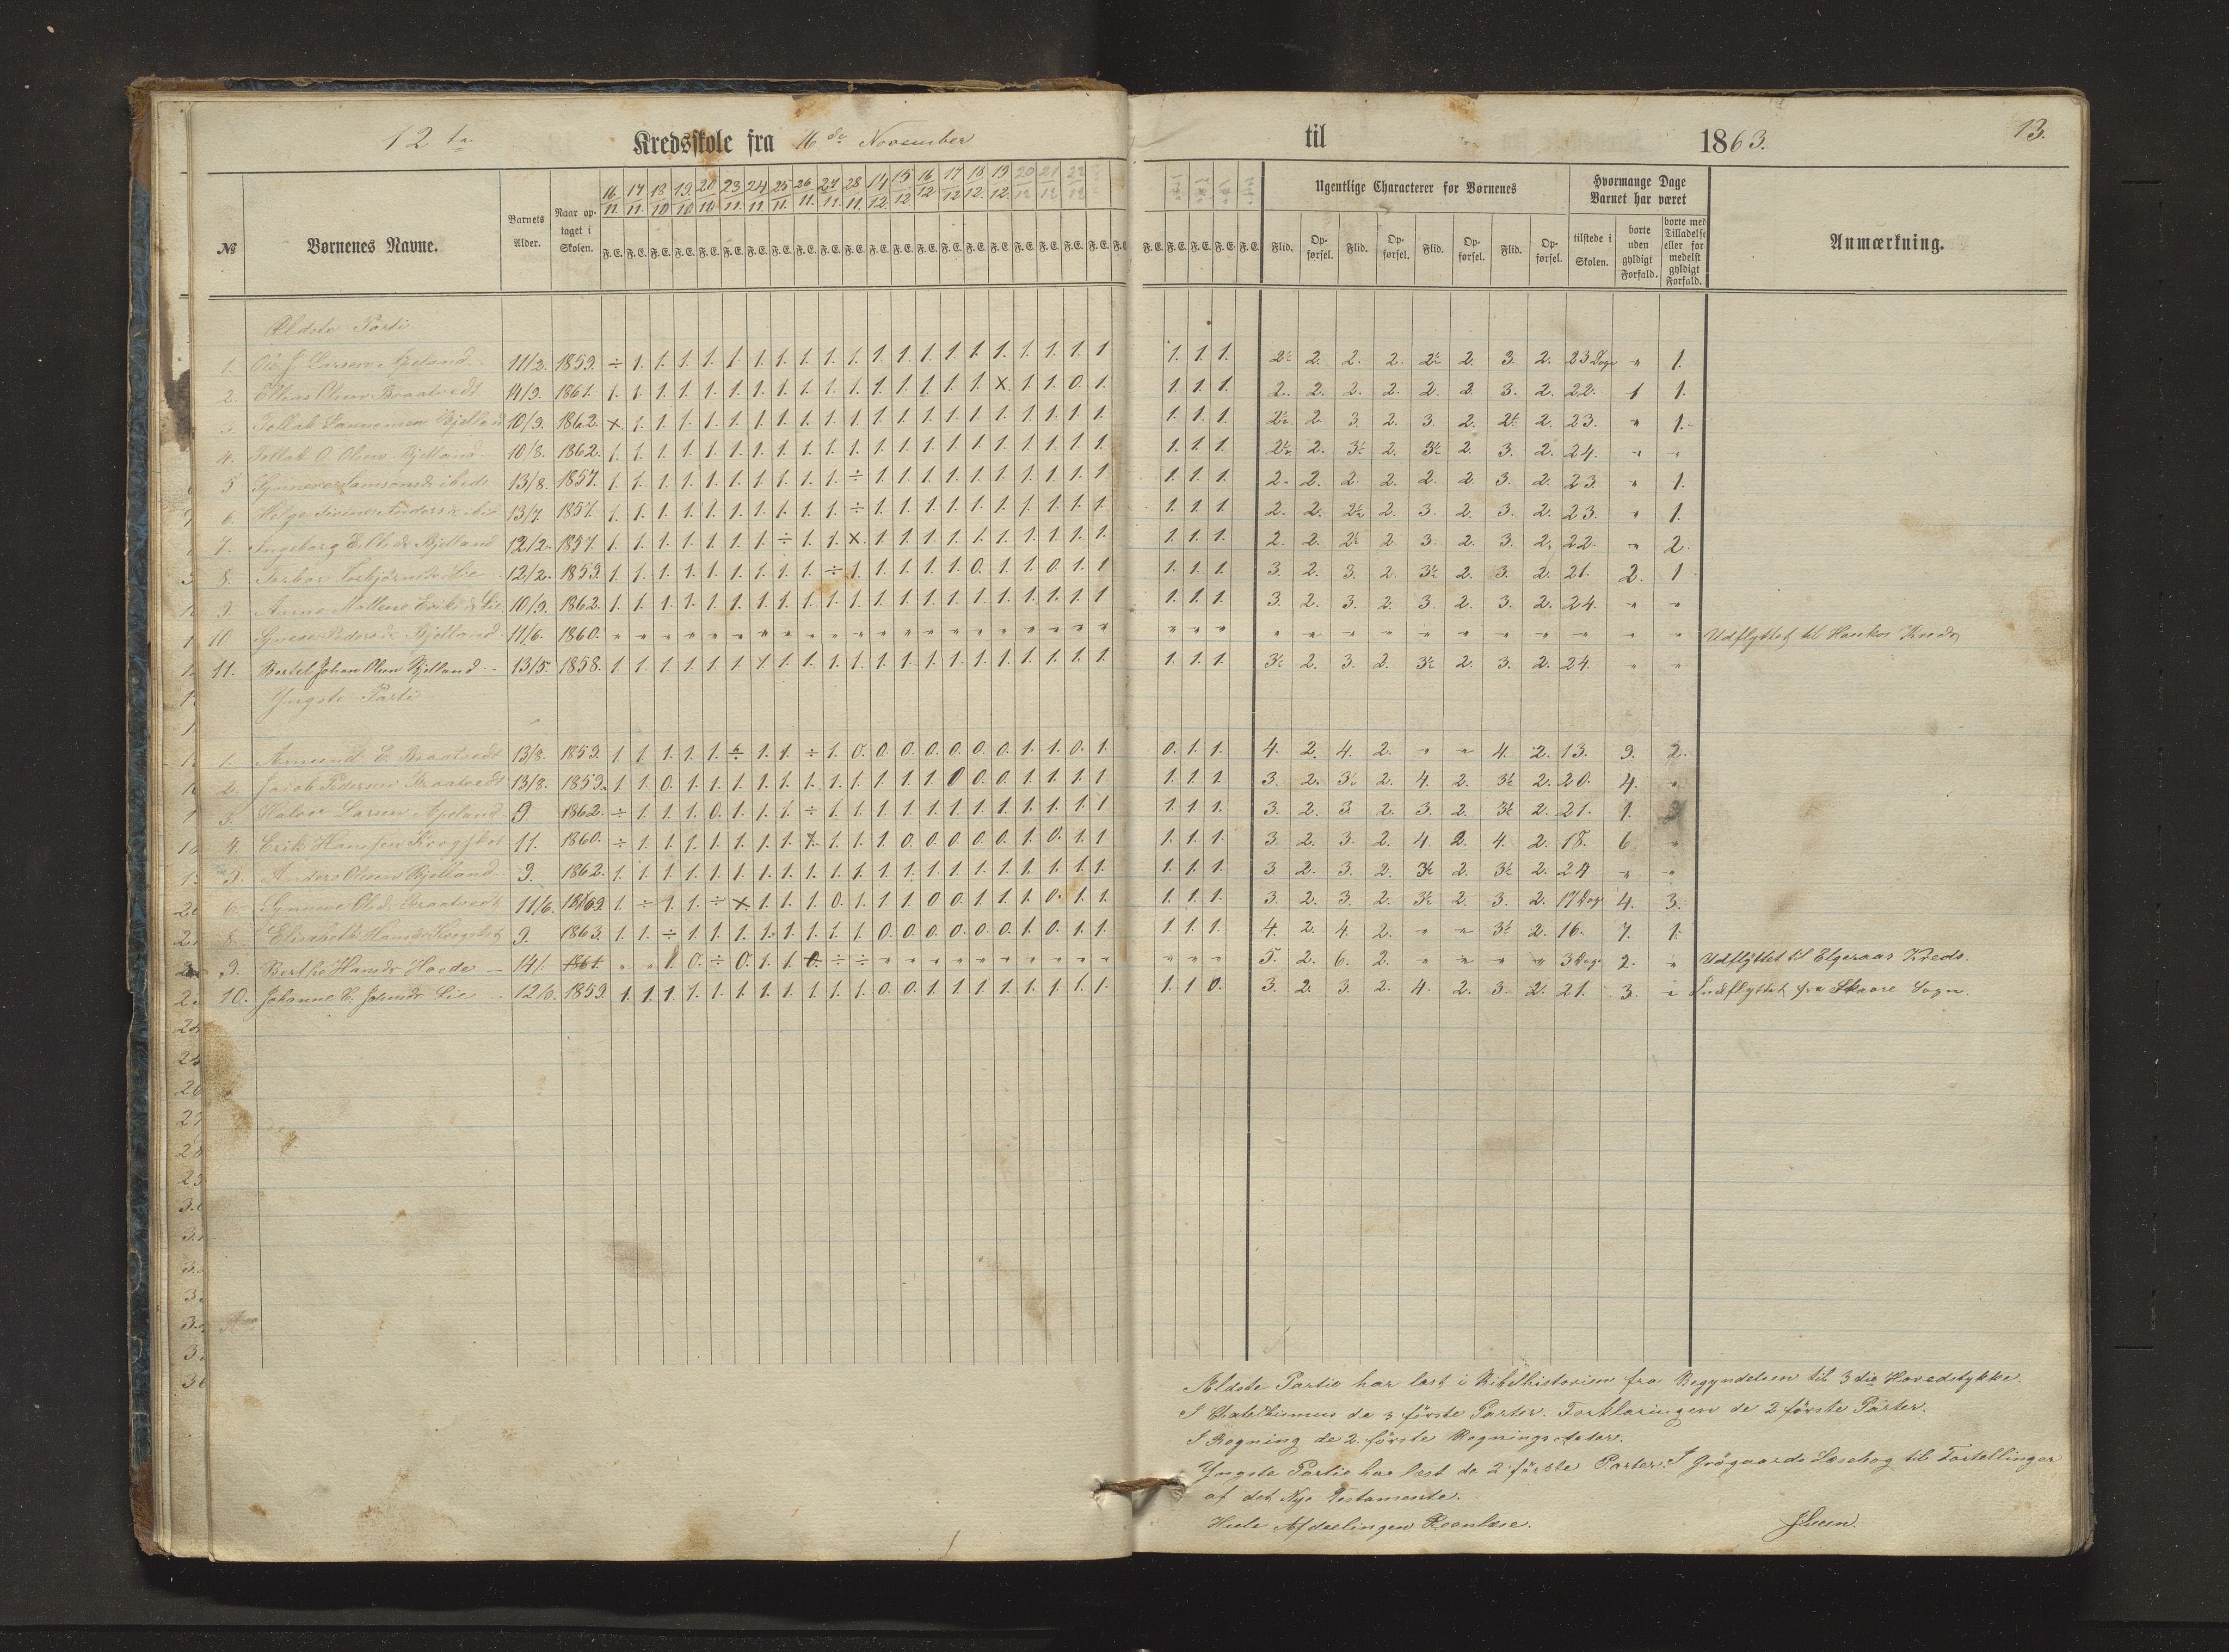 12te Kredsskole fra 16de November til 1863. 13.
№ Børnenes Navne. Barnets Alder. Naar optaget i Skolen. Ugentlige Characterer for Børnenes Hvormange Dage Barnet har været Anmærkning.
16/11. 17/11. 18/10 19/10 20/10 23/11. 24/11. 25/11. 26/11. 27/11. 28/11. 14/12. 15/12. 16/12 17/12 18/12. 19/12. 20/12 21/12 22/12
F.E. F.E. F.E. F.E. F.E. F.E. F.E. F.E. F.E. F.E. F.E. F.E. F.E. F.E. F.E. F.E. F.E. F.E. F.E. F.E. F.E. F.E. F.E. F.E. F.E. F.E. Flid. Opførsel. Flid. Opførsel. Flid. Opførsel. Flid. Opførsel. tilstede i Skolen. borte uden gyldigt Forfald. borte med Tilladelse eller formedelst gyldigt Forfald.
Ældste Parti
1. Ole J. Larsen Apeland 11/2. 1859. ÷ 1. 1. 1. 1. 1 1. 1. 1. 1. 1. 1. 1. 1. 1. 1. 1. 1. 1. 1. 1 1. 1. 1. 2½ 2. 2. 2. 2½ 2. 3. 2. 23 Dage " 1.
2. Elias Olsen Braatvedt 14/9. 1861. 1. 1. 1. 1. 1. 1. 1. 1. 1. 1. 1. 1. 1. 1. 1. 1. X. 1. 1. 0. 1. 1. 1. 1. 2. 2. 2. 2. 2. 2. 3. 2. 22. 1 1.
3. Tollak Bjelland 10/9. 1862. X 1. 1. 1. 1. 1. 1. 1. 1. 1. 1. 1. 1. 1. 1. 1. 1. 1. 1. 1. 1. 1. 1. 1. 2½ 2. 3. 2. 3. 2. 2½ 2. 23. " 1.
4. Tollak O. Olsen Bjelland 10/8. 1862. 1. 1. 1. 1. 1. 1. 1. 1. 1. 1. 1. 1. 1. 1. 1. 1. 1. 1. 1. 1. 1. 1. 1. 1. 2½ 2. 3½ 2. 3½ 2. 3. 2. 24. " "
5 Synneve Samsonsdr ibidr 13/8. 1857. 1. 1. 1. 1. 1. 1. 1. 1. 1. 1. ÷ 1. 1. 1. 1. 1. 1. 1. 1. 1. 1. 1. 1. 1. 2. 2. 2. 2. 2. 2. 3. 2. 23. " 1.
6. Helge Andersdr ibid 13/7. 1857. 1. 1. 1. 1. 1. 1. 1. 1. 1. 1. ÷ 1. 1. 1. 1. 1. 1. 1. 1. 1. 1. 1. 1. 1. 2. 2. 2½ 2. 3. 2. 3. 2. 23. " 1.
7. Ingeborg Bjelland 12/2. 1857. 1. 1. 1. 1. 1. 1. 1. ÷ 1. 1. X. 1. 1. 1. 1. 1. 1. 1. 1. 1. 1. 1. 1. 1. 2. 2. 2½ 2 3. 2. 3. 2. 22. " 2.
8. Torbjörnsdr Lie 12/2. 1859. 1. 1. 1. 1. 1. 1. 1. 1. 1. ÷ 1. 1. 1. 1. 1. 0. 1. 1. 0. 1. 1. 1. 1. 1. 3. 2. 3. 2. 3½ 2. 3. 2. 21. 2. 1
9. Anne Mallene Eriksdr Lie 10/9. 1862. 1. 1. 1. 1. 1. 1. 1. 1. 1. 1. 1. 1. 1. 1. 1. 1. 1. 1. 1. 1. 1. 1. 1. 1. 3. 2. 3. 2. 3. 2. 3. 2. 24. " "
10 Pedersdr Bjelland 11/6. 1860. " " " " " " " " " " " " " " " " " " " " " " " " " " " " " " " " " " " Udflyttet til Haukos Kreds
11. Bertel Johan Olsen Bjelland 13/5 1858. 1. 1. 1. 1. 1. 1. 1. 1. 1. 1. 1. 1. 1. 1. 1. 1. 1. 1. 1. 1. 1. 1. 1. 1. 3½ 2. 3. 2. 3½ 2. 3. 2. 24. " "
Yngste Parti
1. Amund E. Braatvedt 13/8. 1859. 1 1 1. 1. 1. ÷ 1. 1. ÷ 1. 0. 0. 0. 0. 0. 0. 0. 1. 1. 0. 1 0. 1. 1. 4. 2. 4. 2. " " 4. 2. 13. 9. 2.
2. Jacob Pedersen Braatvedt 13/8. 1859. 1 1. 0. 1. 1. 1. 1. 1. 1. 1. 1. 1. 1. 1. 0 0. 0. 1. 1. 1. 1 1. 1. 1. 3. 2. 3½ 2. 4. 2. 3½ 2. 20. 4. "
3. Halvor Larsen Apeland 9 1862. ÷ 1. 1. 1. 0. 1. 1. 1. ÷ 1. 1. 1. 1. 1. 1. 1. 1. 1. 1. 1. 1 1. 1. 1. 3. 2. 3. 2. 3. 2. 3½ 2. 21. 1. 2
4. Erik Hansen Krogskot 11. 1860. ÷ 1. 1. 1. 1. 1. 1. 1. 1. 1. 1. 1 0. 0. 0. 0. 0. 1. 0. 1. 1 1. 1. 1. 3. 2. 3. 2. 4. 2. 4. 2. 18. 6 "
5. Anders Olsen Bjelland 9. 1862. 1. 1. 1. 1. 1. 1. 1. 1. 1. 1. 1. 1. 1. 1. 1. 1. 1. 1. 1. 1. 1. 1. 1. 1. 3. 2. 3. 2. 3½ 2. 3½ 2. 24 " "
6. Synneve Olsdr Braatvedt 11/6. 1859 1. ÷ 1. 1. ÷ X. 1. 1. 1. 0. 1. 1. 1. 0 0. 1. 1. 1. 0. 1. 1 1. 1. 1. 3. 2. 3. 2. 3½ 2. 3. 2. 17 Dage 4. 3.
8. Elisabeth Hansdr Krogskot 9. 1863. 1. 1. ÷ 1. 1. 1. 1. 1. 1. 1. 1. 0. 0. 0. 0. 0. 0. 1. 0. 1. 1 1. 1. 1. 4. 2. 4. 2. " " 3½ 2. 16. 7. 1.
9. Berthe Hansdr 14/. 1861. " " 1. 0. ÷ 0. 1. 1. 0. ÷ ÷ " " " " " " " " " " " " " 5. 2. 6. 2. " " " " 3 Dage 2. " Udflyttet til Elgeraas Kreds.
10. Johanne E. Johnsdr Lie 12/3. 1859. 1. 1. 1. 1. 1. 1. 1. 1. 1. 1. 1. 0. 0. 1. 1. 1. 1. 1. 1. 1. 1. 1. 1 0. 3. 2. 3. 2. 4. 2. 3. 2. 21. 3. Indflyttet fra Skaare Sogn.
Ældste Partie har læst i Bibelhistorien fra Begyndelsen til 3die Hovedstykke.
I Chatechismus de 3 förste Parter. Forklaringen de 2 förste Parter.
I Regning de 2 förste Regningsarter.
Yngste Partie har læst de 2 förste Parter. I Grögaards Læsebog til Fortellinger
af det Nye Testamente.
Hele Afdeelingen Reenlæse.